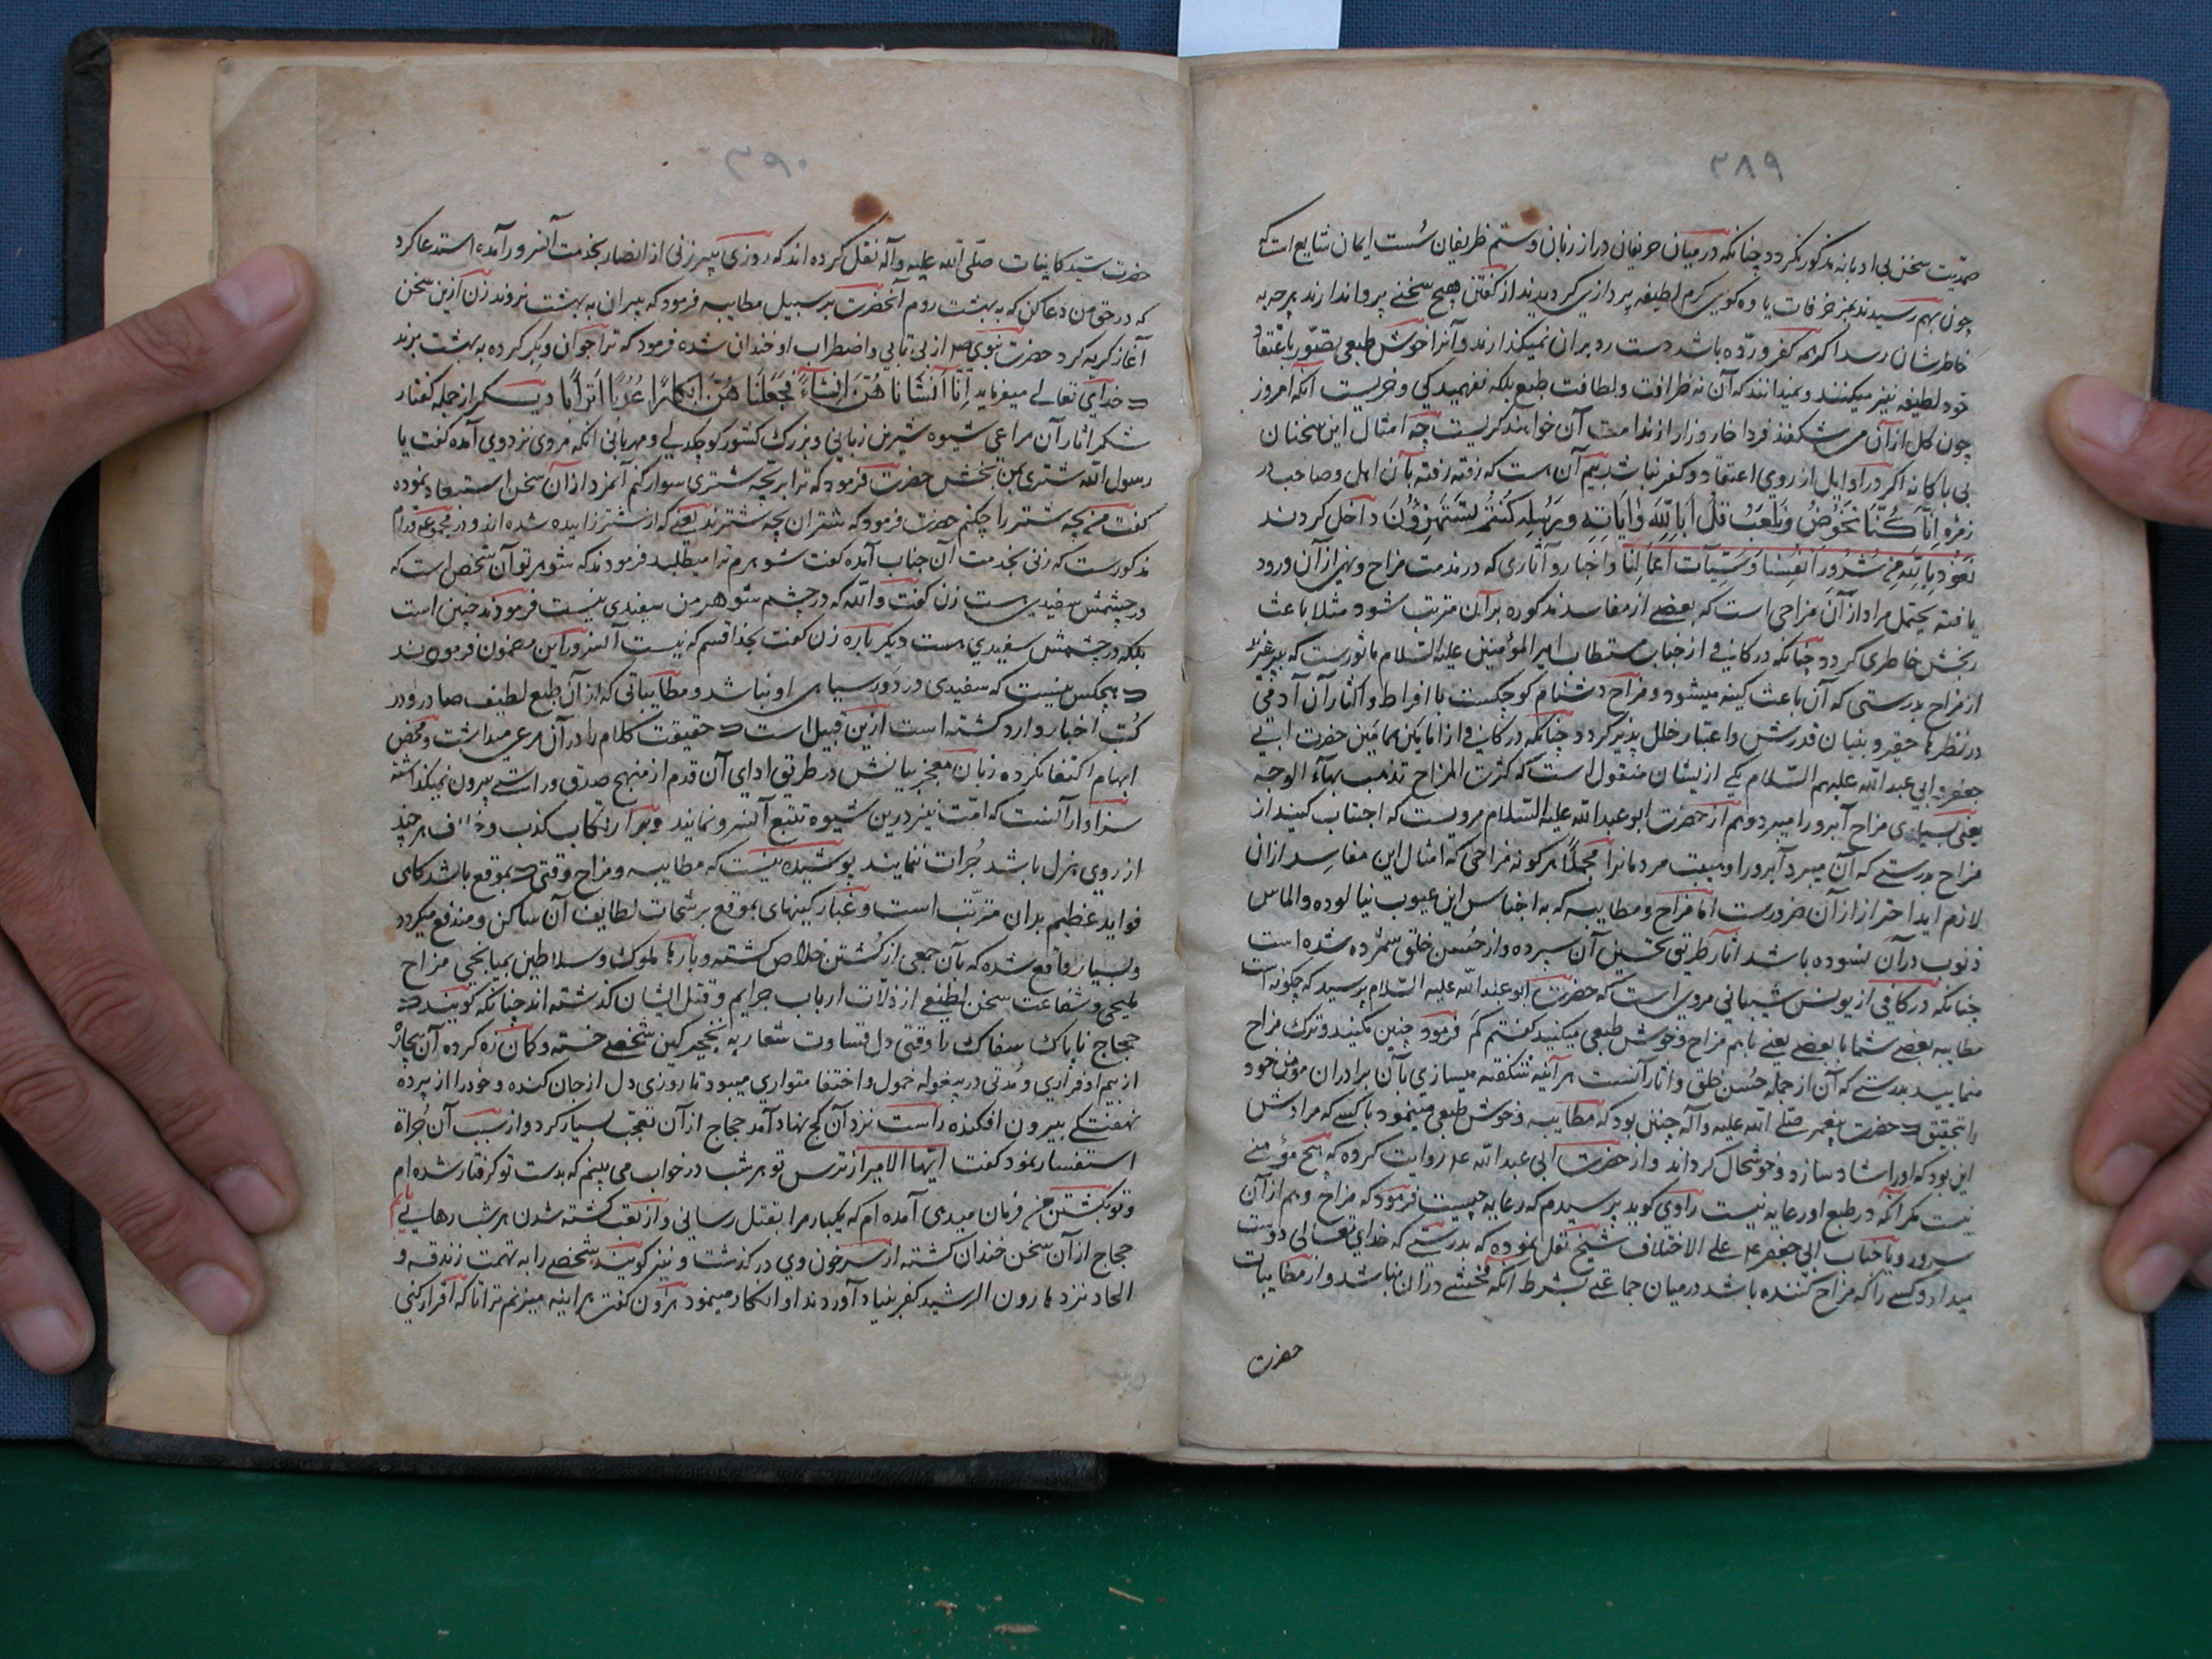 ۳۸۹
صمدیت سخن بی ادبانه مذکور نگردد چنانکه در میان حریفان دراز زبان و ستم ظریفان سست ایمان شایع است که
چون بهم رسیدند بجز خرفات یاوه کویی کرم لطیفه پردازی کردیدند از کفتن هیچ سخنی پروا ندارند هرچه به
خاطرشان رسد اکرچه کفر و رده باشد دست رد بر آن نمیکذارند و آنرا خوش طبعی تصور باعتقاد
خود لطیفه نغز میکنند و نمیدانند که آن نه ظرافت و لطافت طبع بلکه نفهمیدکی و خریست آنکه امروز
چون کل از آن می شکفند فردا خار وزار از ندامت آن خواهند کریست چه امثال این سخنان
بی باکانه اکر در اوایل از روی اعتقاد و کفر نباشد بیم آن هست که رفته رفته بآن اهل و صاحب را در
زمره اِنَّا كُنَّا نَخُوضُ وَنَلْعَبُ قُلْ اَبِاللّهِ وَاٰيَاتِهِ وَرَسُولِهِ كُنْتُمْ تَسْتَهْزِؤُنَ داخل کردند
نَعُوذُ بِاللّهِ مِنْ شُرُورِ اَنْفُسِنَا وَسَيِّئَاتِ اَعْمَالِنَا و اخبار و آثاری که در مذمت مزاح و نهی از آن ورود
یافته یحتمل مراد از آن مزاحی است که بعضی از مفاسد مذکوره بر آن مترتب شود مثلا باعث
رنجش خاطری کردد چنانکه در کافی از جناب مستطاب امیرالمؤمنین علیه السلام ماثورست که بپرهیزید
از مزاح بدرستی که آن باعث کینه میشود و مزاح دشنام کوچکست با افراط و اکثار آن آدمی
در نظرها حقیر و بنیان قدرش و اعتبار خلل پذیر کردد چنانکه در کافی از امامین همامین حضرت ابی
جعفر و ابی عبد الله علیهم السلام یکی از یشان منقول است که کثرت المزاح تذهب بماء الوجه
یعنی بسیاری مزاح آبرو را میبرد و هم از حضرت ابو عبدالله علیه السلام مرویست که اجتناب کنید از
مزاح بدرستی که آن میبرد آبرو را و هیبت مردمانرا مجملاً هر کونه مزاحی که امثال این مفاسد از ان
لازم اید احتراز از آن ضرورست امّا مزاح و مطایبه که به اجناس این عیوب نیالوده و الماس
ذنوب در آن نسوده باشد انار طریق تحسین آن سپرده و از حُسن خلق شمرده شده است
چنانکه در کافی از یونس شیبانی مروی است که حضرت ابو عبد الله علیه السلام پرسید که چکونه است
مطایبه بعضی شما با بعضی یعنی باهم مزاح و خوش طبعی میکنید کفتم کم فرمود چنین مکنید و ترک مزاح
منمایید بدرستی که آن از جمله حُسن خلق و اثار آنست هر آینه شکفته میسازی بآن برادران مؤمن خود
را بتحقیق که حضرت پیغمبر صلی الله علیه و آله چنین بود که مطایبه و خوش طبعی مینمود با کسی که مرادش
این بود که اورا شاد سازد و خوشحال کرداند و از حضرت ابی عبد الله ع روایت کرده که هیچ مؤمنی
نیست مکر آنکه در طبع او دعابه نیست راوی کوید پرسیدم که دعابه چیست فرمود که مزاح و هم از آن
سرور و یا جناب ابی جعفر ع علی الاختلاف شیخ نقل نموده که بدرستی که خدای تعالی دوست
میدارد کسی را که مزاح کننده باشد در میان جماعتی بشرط آنکه فحشی در ان نباشد و از مطایبات
حضرت
۳۹۰
حضرت سیّد کاینات صلّی الله علیه و آله نقل کرده اند که روزی پیرزنی از انصار بخدمت آنسرور آمده استدعا کرد
که در حق من دعا کن که به بهشت روم آنحضرت بر سبیل مطایبه فرمود که پیران به بهشت نروند زن ازین سخن
آغاز کریه کرد حضرت نبوی ص از بی تابی و اضطراب او خندان شده فرمود که ترا جوان و بکر کرده به بهشت برند
که خدای تعالی میفرماید اِنَّا اَنْشَاْنَا هُنَّ اِنْشَاءً فَجَعَلْنَا هُنَّ اَبْكَارًا عُرُبًا اَتْرَابًا دیکر از جمله کفتار
شکر اثار آن مراعی شیوه شیرین زبانی و بزرک کشور کوچکدلی و مهربانی انکه مردی نزد وی آمده کفت یا
رسول الله شتری بمن بخش حضرت فرمود که ترا بر بچه شتری سوار کنم آنمرد از آن سخن استبعاد نموده
کفت من بچه شتر را چکنم حضرت فرمود که شتران بچه شترند یعنی که از شتر زاییده شده اند و در مجموعه ورّام
مذکورست که زنی بخدمت آن جناب آمده کفت شوهرم ترا میطلبد فرمودند که شوهر تو آن شخص است که
در چشمش سفیدی هست زن کفت والله که در چشم شوهر من سفیدی نیست فرمودند چنین است
بلکه در چشمش سفیدی هست دیکر باره زن کفت بخدا قسم که نیست آنسرور این مضمون فرمودند
که هیچکس نیست که سفیدی در دور سیاهی او نباشد و مطایباتی که از آن طبع لطیف صادر و در
کتب اخبار وارد کشته است ازین قبیل است که حقیقت کلام را در آن مرعی میداشت و محض
ابهام اکتفا نکرده زبان معجز بیانش در طریق ادای آن قدم از منهج صدق و راستی بیرون نمیکذاشته
سزاوار آنست که امّت نیز درین شیوه تتبع آنسرور نمایند و بر ارتکاب کذب و خلاف هر چند
از روی هزل باشد جُرات ننمایند پوشیده نیست که مطایبه و مزاح وقتی که بموقع باشد کاهی
فواید عظیم بدان مترتب است و غبار کینهای بموقع برشحات لطایف آن ساکن و مندفع میکردد
و بسیار واقع شده که بآن جمعی از کُشتن خلاص کشته و بارها ملوک و سلاطین بمیانجی مزاح
ملیحی و شفاعت سخن لطیفی از ذلّات ارباب جرایم و قتل ایشان کذشته اند چنانکه کویند که
حجاج ناپاک سفاک را وقتی دل قساوت شعار به نخچیر کین شخصی خسته و کمان زه کرده آن بیچاره
از بیم او فراری و مُدتی در بیغوله خمول و اختفا متواری میبود تا روزی دل از جان کنده و خود را از پرده
نهفتکی بیرون افکنده راست نزد آن کج نهاد آمد حجاج از آن تعجّب بسیار کرد و از سبب آن جُراة
استفسار نمود کفت ایّها الامیر از ترس تو هر شب در خواب می بینم که بدست تو کرفتار شده ام
و تو بکشتن من فرمان میدهی آمده ام که یکبار مرا بقتل رسانی و از تعب کشته شدن هر شب رهایی یابم
حجاج از آن سخن خندان کشته از سر خون وی در کذشت و نیز کویند شخصی را به تهمت زندقه و
الحاد نزد هارون الرشید کفر بنیاد آوردند او انکار مینمود هرون کفت هر اینه میزنم ترا تا که اقرار کنی